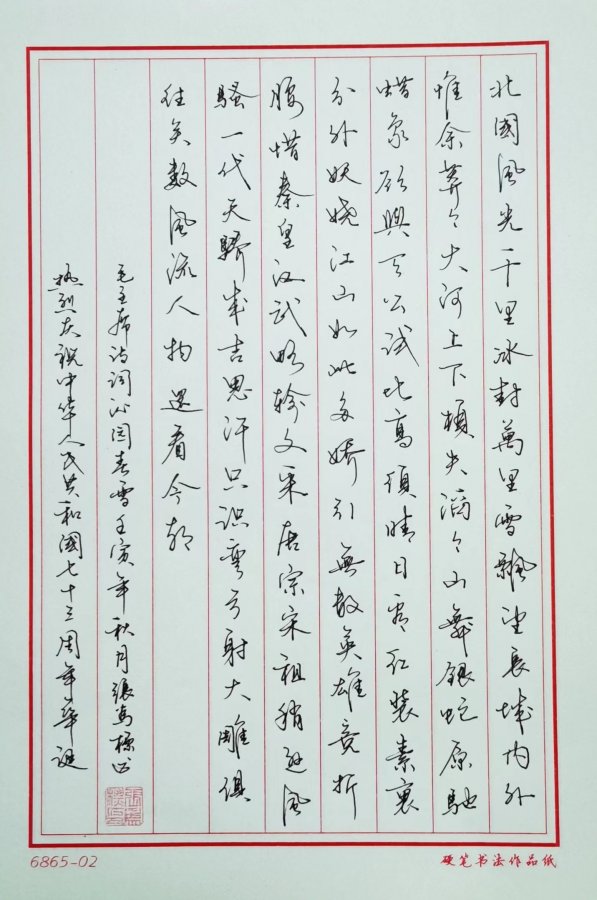 北國風光千里冰封萬里雪飄望長城内外
惟余莽々大河上下頓失滔々山舞銀蛇原馳
蜡象欲與天公試比高須晴日看红装素裹
分外妖娆江山如此多嬌引無数英雄竞折
腰惜秦皇汉武略输文采唐宗宋祖稍逊风
騷一代天驕成吉思汗只识弯弓射大雕俱
往矣数風流人物還看今朝
毛主席诗词沁园春雪壬寅年秋月張书
热烈庆祝中华人民共和國七十三周年華诞
6865-02
硬笔书法作品纸